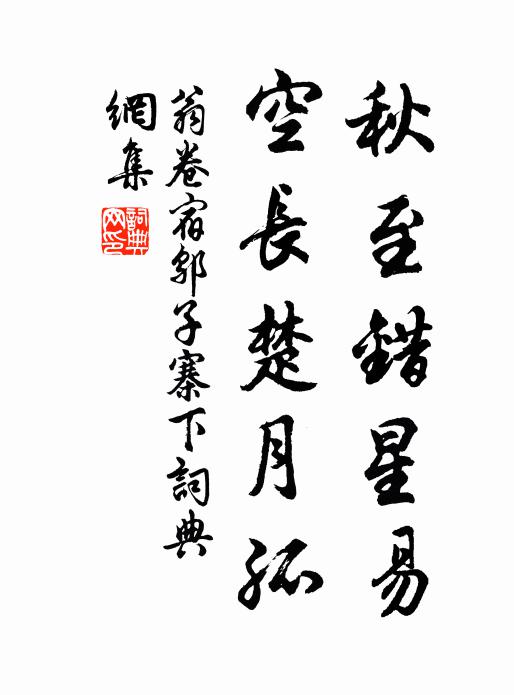 秋至錯星易
空長楚月孤
翁卷宿鄔子寨下詞典
網集
詞典網印